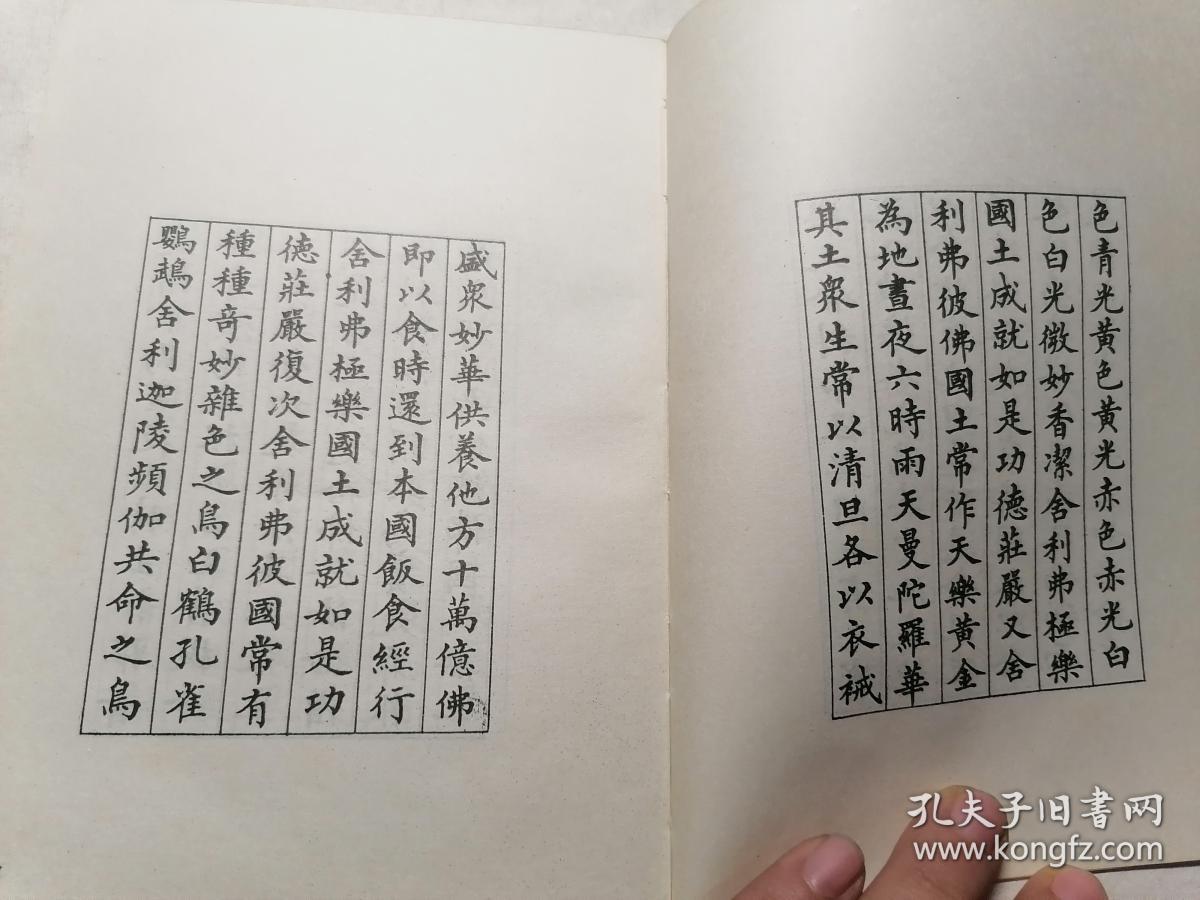 色青光黄色黄光赤色赤光白
色白光微妙香潔舍利弗極樂
國土成就如是功德莊嚴又舍
利弗彼佛國土常作天樂黄金
為地晝夜六時雨天曼陀羅華
其土眾生常以清旦各以衣裓
盛眾妙華供養他方十萬億佛
即以食時還到本國飯食經行
舍利弗極樂國土成就如是功
德莊嚴復次舍利弗彼國常有
種種奇妙雜色之鳥白鶴孔雀
鸚鵡舍利迦陵頻伽共命之鳥
孔夫子旧书网
www.kongfz.com